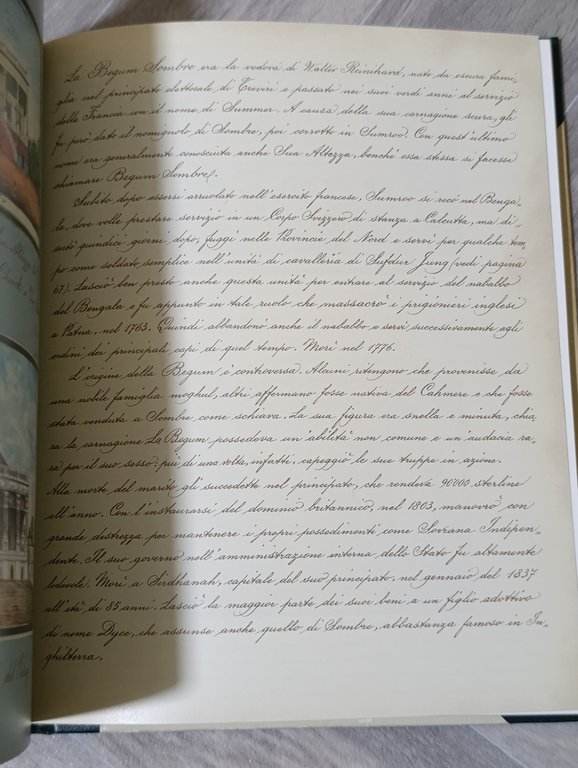 La Begum Sombre era la vedova di Walter Reinihard, nato da oscura fami-
glia nel principato elettorale di Treviri e passato nei suoi verdi anni al servizio
della Francia con il nome di Summer. A causa della sua carnagione scura, gli
fu però dato il nomignolo di Sombre, poi corrotto in Sumroo. Con quest'ultimo
nome era generalmente conosciuta anche Sua Altezza, benché essa stessa si facesse
chiamare Begum Sombre.
Subito dopo essersi arruolato nell'esercito francese, Sumroo si recò nel Benga-
la, dove volle prestare servizio in un Corpo Svizzero di stanza a Calcutta, ma di-
sertò quindici giorni dopo, fuggì nelle Provincie del Nord e servì per qualche tem-
po come soldato semplice nell'unità di cavalleria di Sufdur Jung (vedi pagina
67). Lasciò ben presto anche questa unità per entrare al servizio del nababbo
del Bengala e fu appunto in tale ruolo che massacrò i prigionieri inglesi
a Patna, nel 1763. Quindi abbandonò anche il nababbo e servì successivamente agli
ordini dei principali capi di quel tempo. Morì nel 1776.
L'origine della Begum è controversa. Alcuni ritengono che provenisse da
una nobile famiglia moghul, altri affermano fosse nativa del Cahmere e che fosse
stata venduta a Sombre come schiava. La sua figura era snella e minuta, chia-
ra la carnagione. La Begum possedeva un'abilità non comune e un'audacia ra-
ra per il suo sesso: più di una volta, infatti, capeggiò le sue truppe in azione.
Alla morte del marito gli succedette nel principato, che rendeva 90000 sterline
all'anno. Con l'instaurarsi del dominio britannico, nel 1803, manovrò con
grande destrezza per mantenere i propri possedimenti come Sovrana Indipen-
dente. Il suo governo nell'amministrazione interna dello Stato fu altamente
lodevole. Morì a Sirdhanah, capitale del suo principato, nel gennaio del 1837
all'età di 85 anni. Lasciò la maggior parte dei suoi beni a un figlio adottivo
di nome Dyce, che assunse anche quello di Sombre, abbastanza famoso in In-
ghilterra.